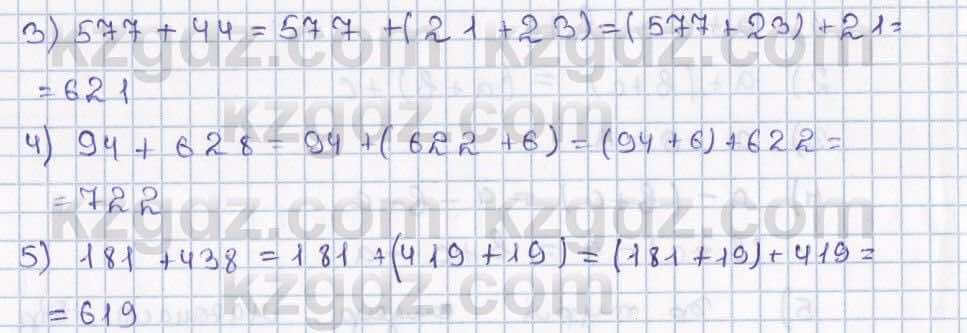 3) 577 + 44 = 577 + (21 + 23) = (577 + 23) + 21 =
= 621
4) 94 + 628 = 94 + (622 + 6) = (94 + 6) + 622 =
= 722
5) 181 + 438 = 181 + (419 + 19) = (181 + 19) + 419 =
= 619
kzgdz.com